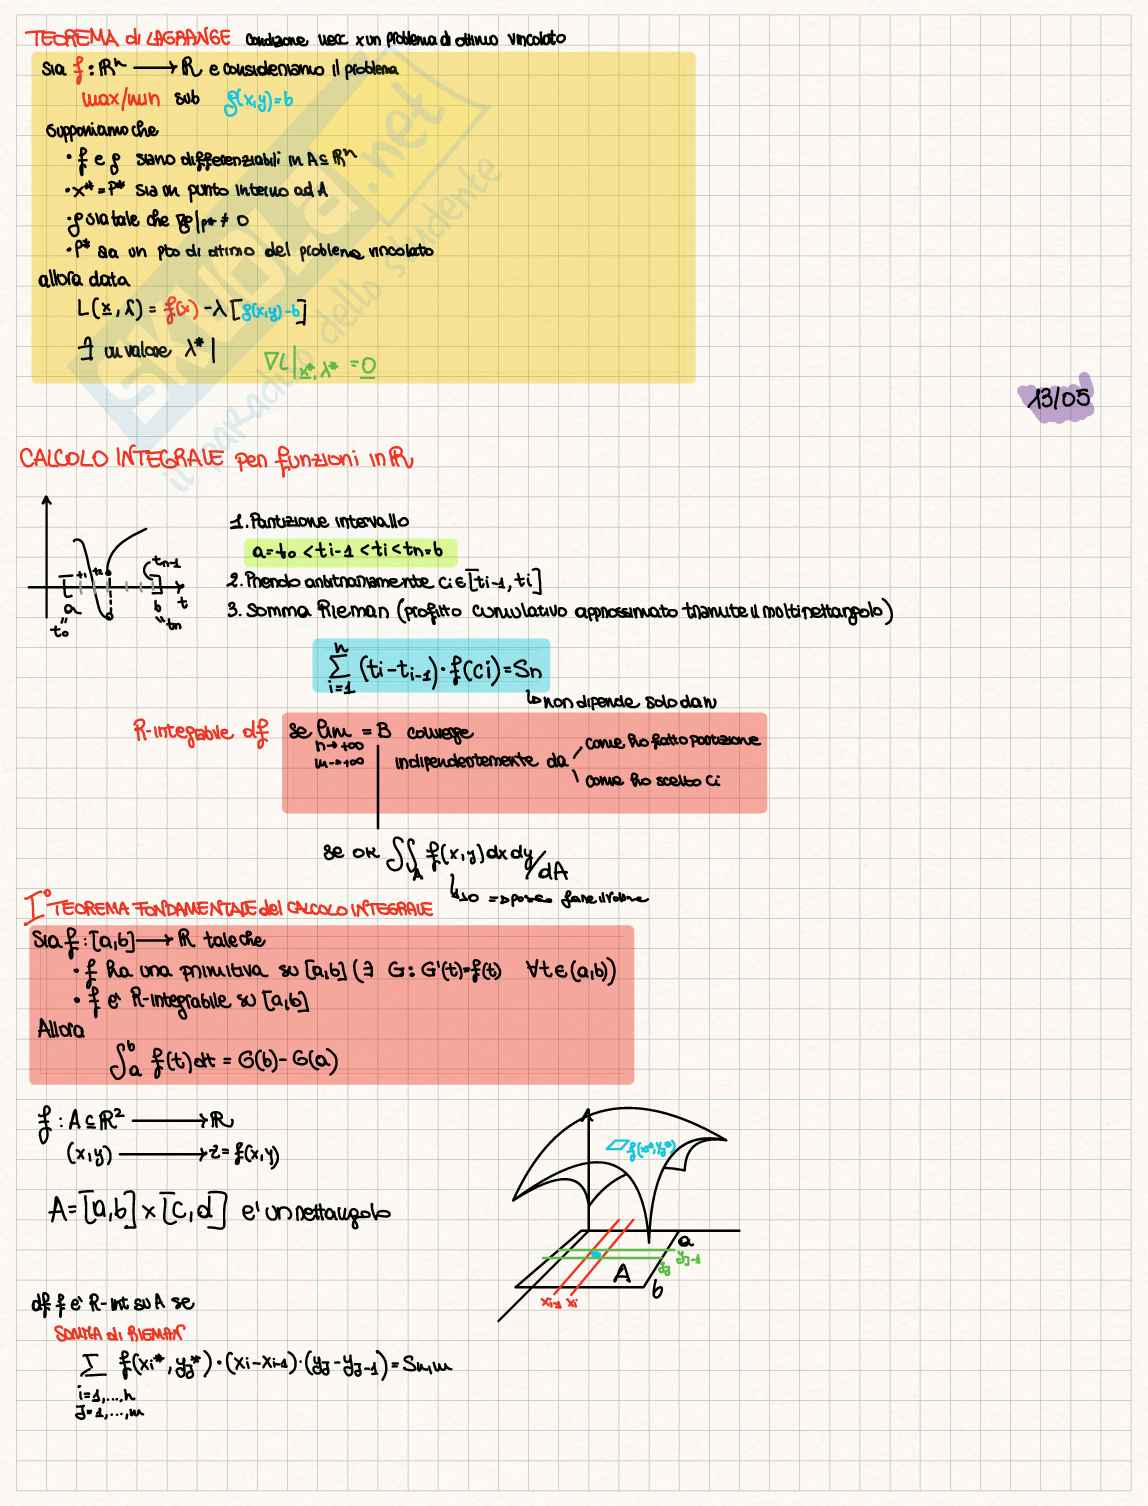 TEOREMA di LAGRANGE condizione necc x un problema di ottimo vincolato
sia f : ℝⁿ → ℝ e consideriamo il problema
max/min sub g(x,y)=b
supponiamo che
• f e g siano differenziabili in A⊆ℝⁿ
• x* = P* sia un punto interno ad A
• g sia tale che ∇g|P* ≠ 0
• P* sia un pto di ottimo del problema vincolato
allora data
L(x, λ) = f(x) - λ[g(x,y)-b]
∃ un valore λ* | ∇L|x*, λ* = 0
13/05
CALCOLO INTEGRALE per funzioni in ℝ
1. Partizione intervallo
a = t₀ < ti-1 < ti < tn = b
2. Prendo arbitrariamente ci ∈ [ti-1, ti]
3. Somma Rieman (profitto cumulativo approssimato tramite il multirettangolo)
t1 t2 tn-1
a b t
t₀ tn
n
∑ (ti - ti-1) · f(ci) = Sn
i=1
↳ non dipende solo da n
R-integrabile df se lim = B converge
n→+∞
m→+∞
indipendentemente da
come ho fatto partizione
come ho scelto ci
se ok ∬A f(x,y) dx dy / dA
↳ ≥0 ⇒ posso fare il volume
I° TEOREMA FONDAMENTALE del CALCOLO INTEGRALE
Sia f : [a,b] → ℝ tale che
• f ha una primitiva su [a,b] (∃ G : G'(t)=f(t) ∀t∈(a,b))
• f è R-integrabile su [a,b]
Allora
∫ₐᵇ f(t) dt = G(b) - G(a)
f : A⊆ℝ² → ℝ
(x,y) → z = f(x,y)
A = [a,b] × [c,d] e' un rettangolo
f(xi*, yj*)
a
yj-1
yj
A
b
xi-1 xi
df f è R-int su A se
SOMMA di RIEMAN
∑ f(xi*, yJ*) · (xi - xi-1) · (yJ - yJ-1) = Sn,m
i=1,...,n
J=1,...,m
SKUOLA.net
il paradiso dello studente